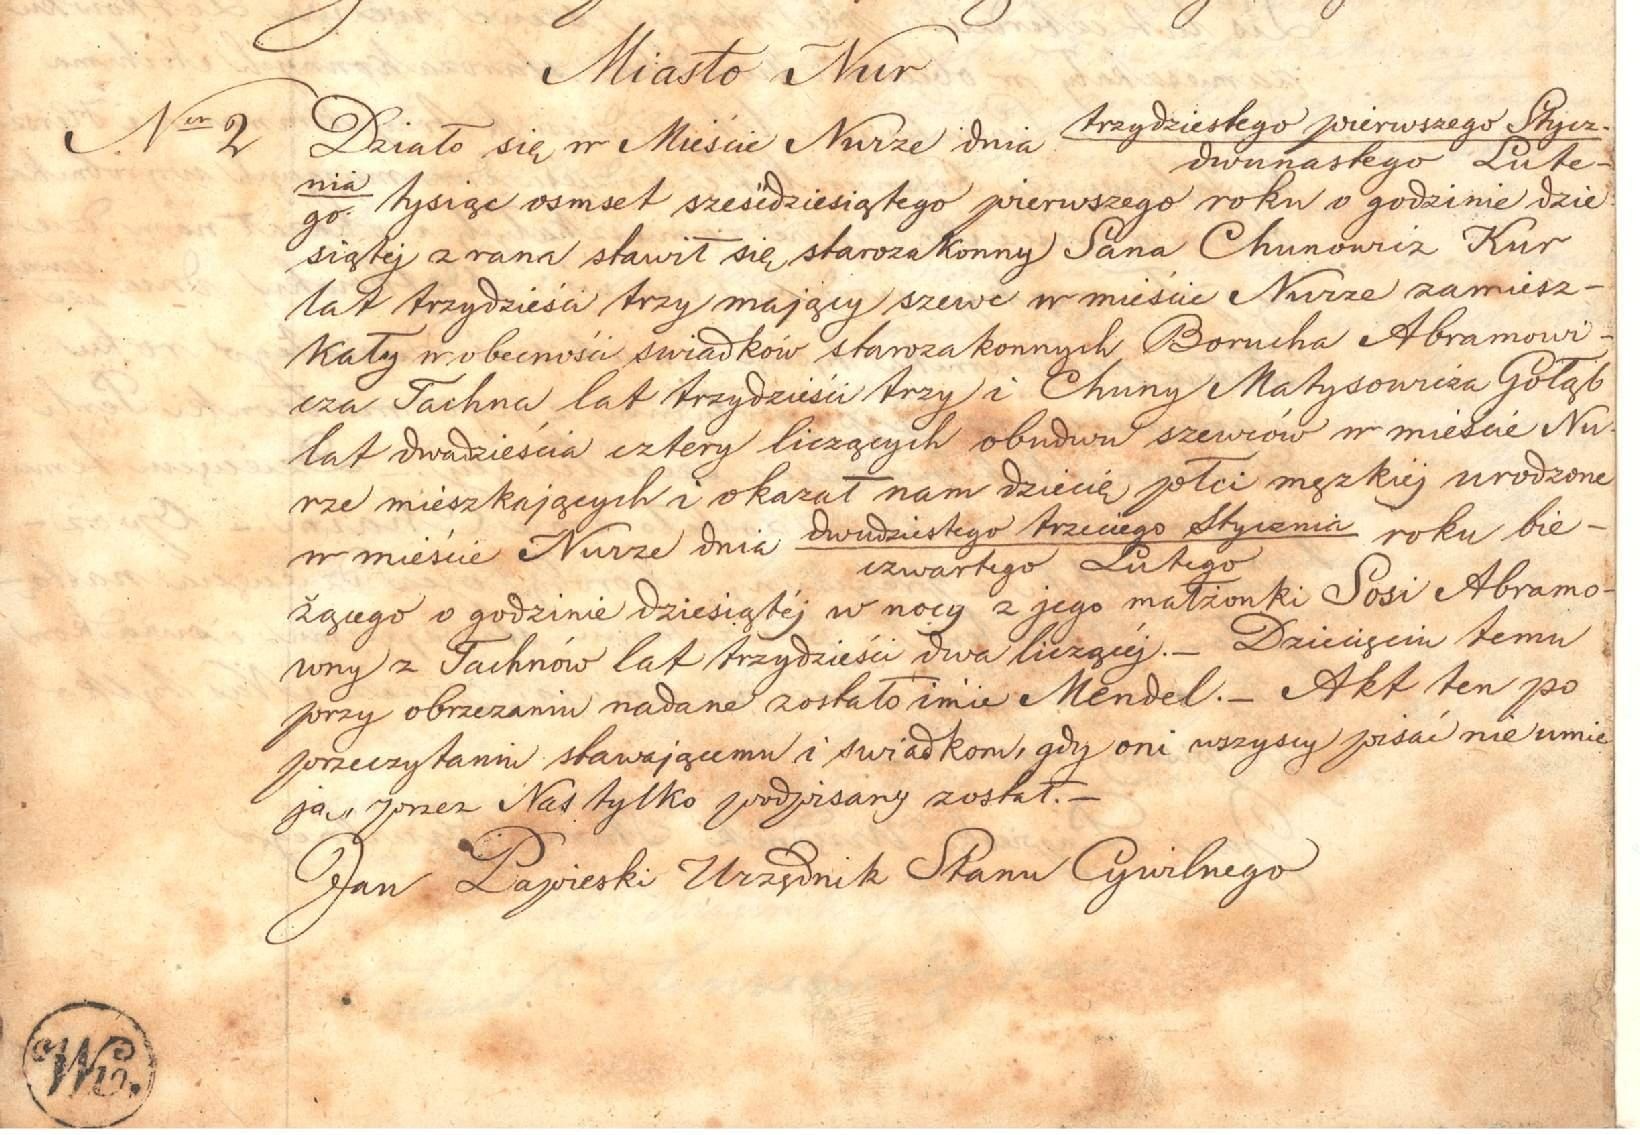 Miasto Nur
Nr 2 Działo się w Mieście Nurze dnia trzydziestego pierwszego Stycz-
dwunastego Lute-
nia
go tysiąc osmset sześćdziesiątego pierwszego roku o godzinie dzie-
siątéj z rana stawił się starozakonny Sana Chunowicz Kur
lat trzydzieści trzy mający szewc w mieście Nurze zamiesz-
kały w obecności swiadków starozakonnych Borucha Abramowi-
cza Tachna lat trzydzieści trzy i Chuny Matysowicza Gołąb
lat dwadzieścia cztery liczących obudwu szewców w mieście Nu-
rze mieszkających i okazał nam dziecię płci męzkiéj urodzone
w mieście Nurze dnia dwudziestego trzeciego Stycznia roku bie-
czwartego Lutego
żącego o godzinie dziesiątéj w nocy z jego małżonki Sosi Abramo-
wny z Tachnów lat trzydzieści dwa liczącéj.– Dziecięciu temu
przy obrzezaniu nadane zostało imie Mendel.– Akt ten po
przeczytaniu stawającemu i swiadkom, gdy oni wszyscy pisać nie umie
ją, przez Nas tylko podpisany został.–
Jan Urzędnik Stanu Cywilnego